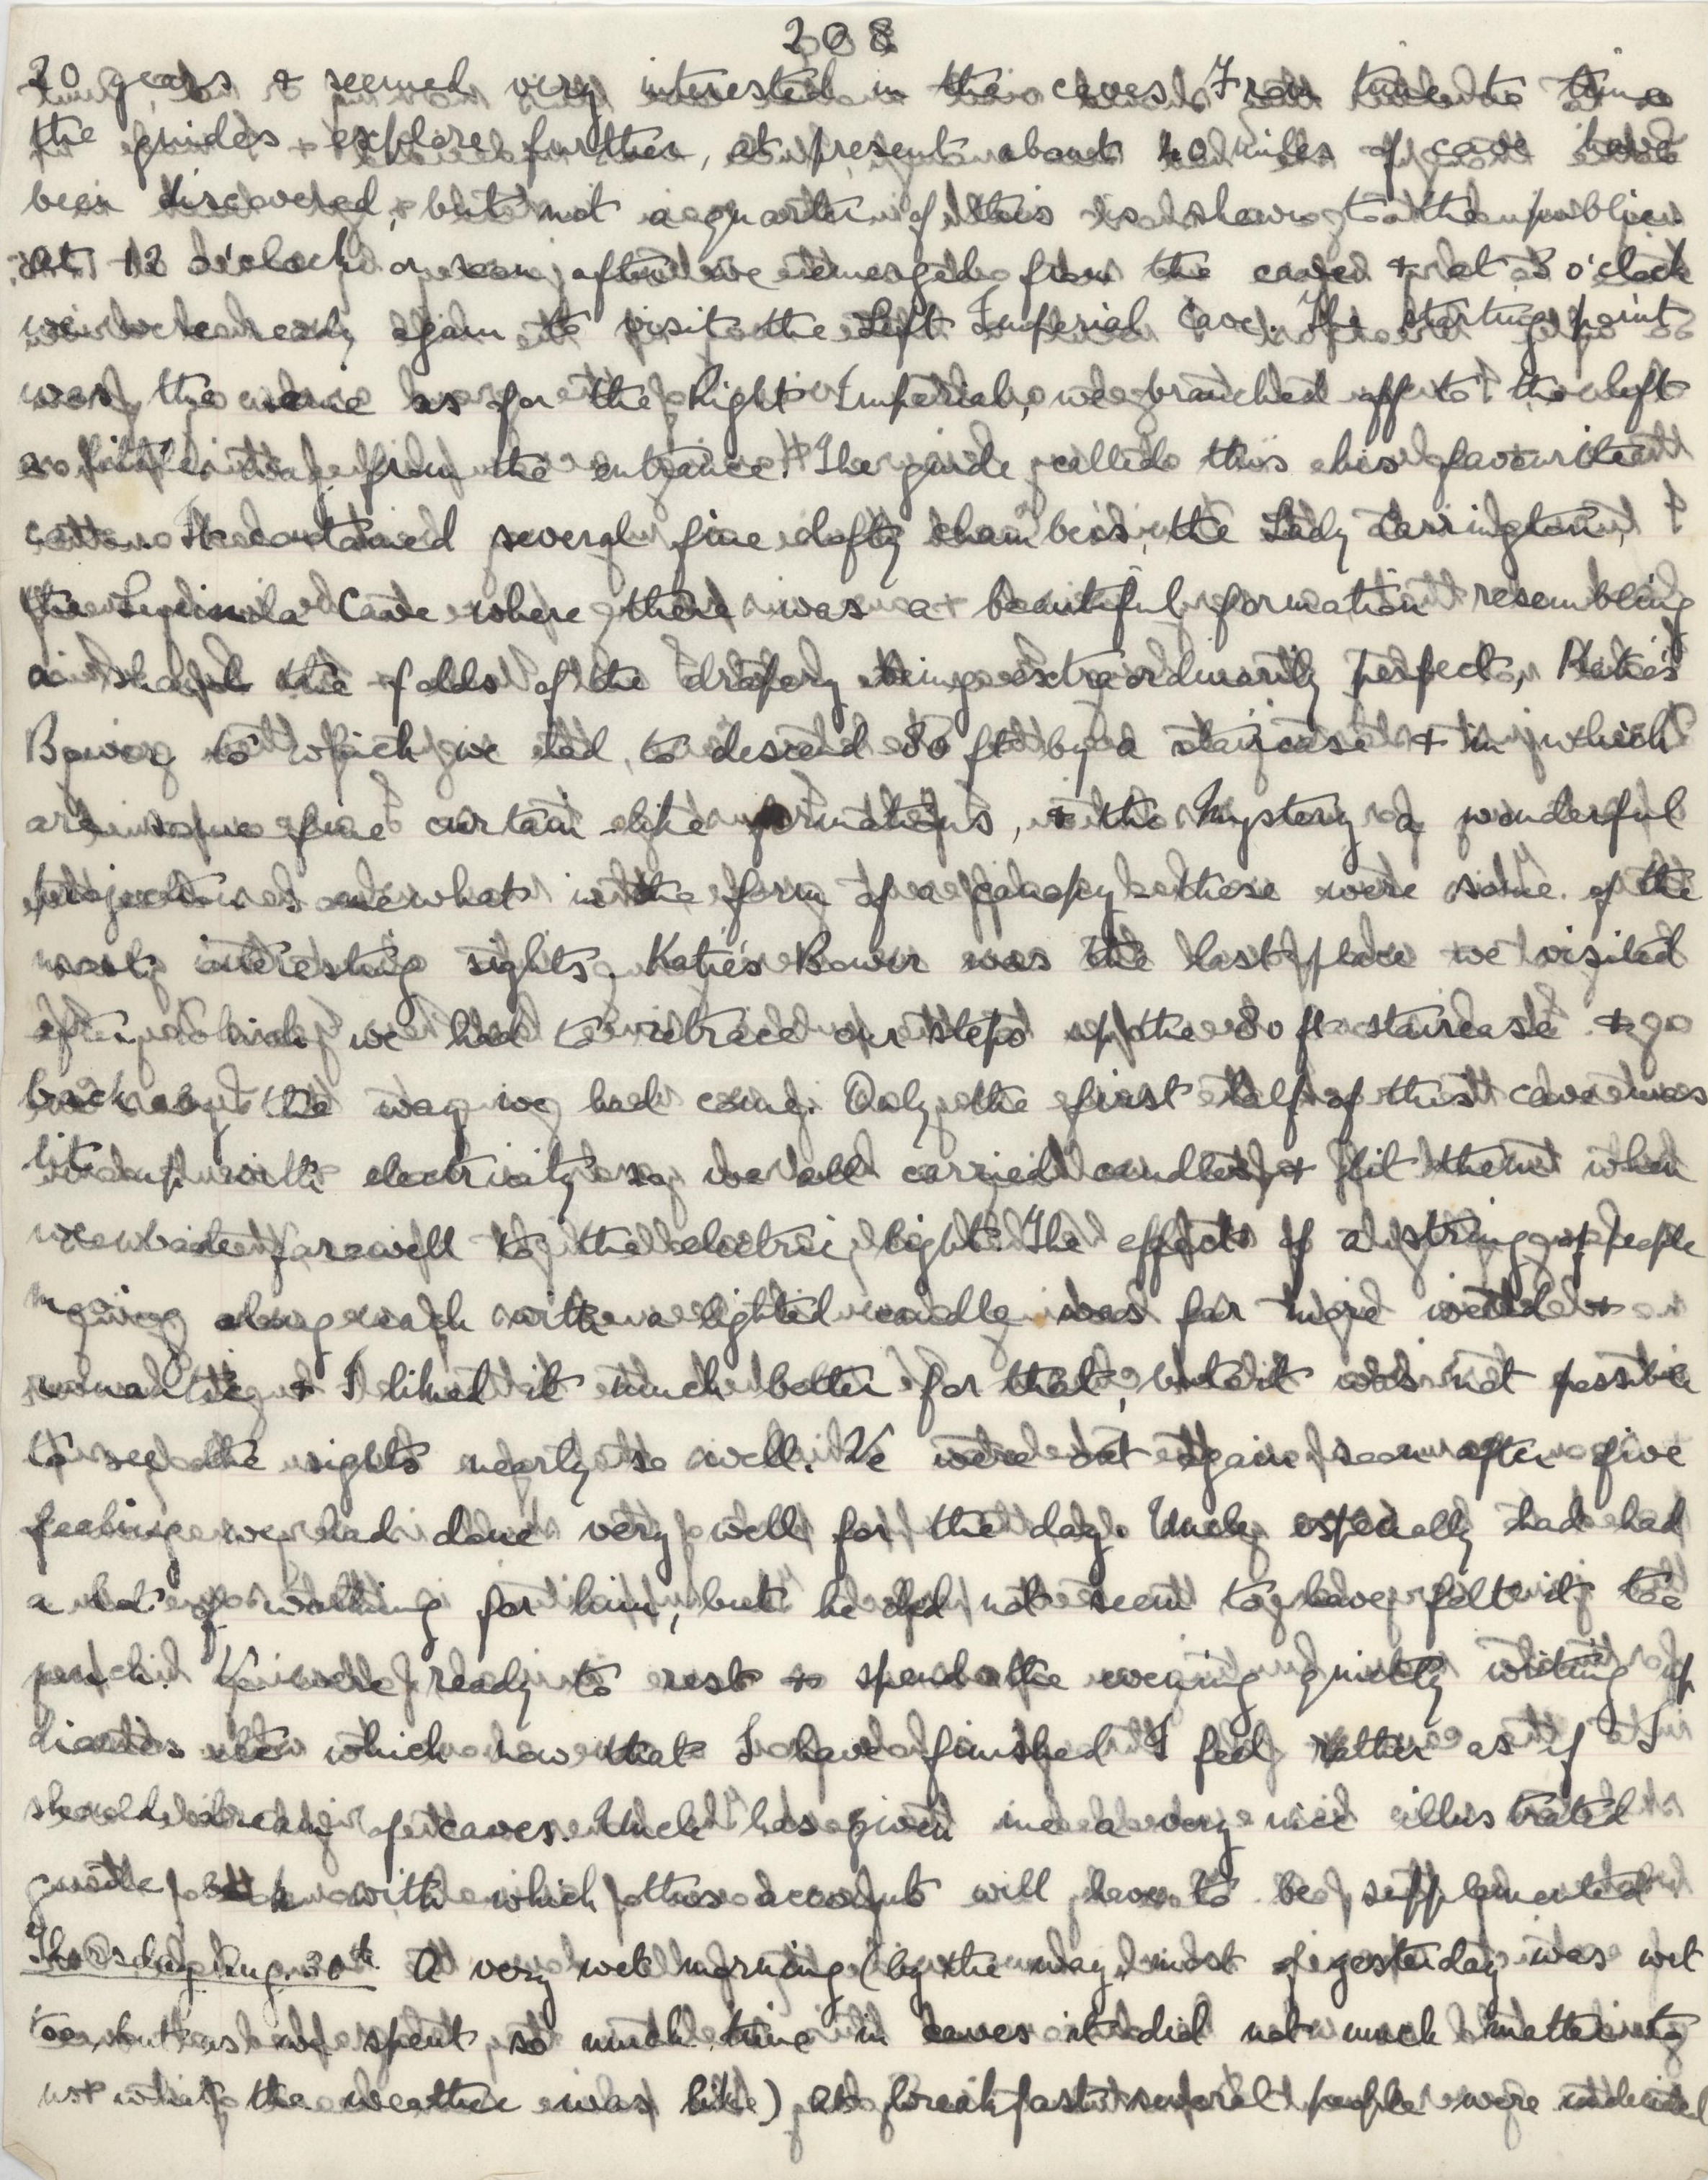 208
20 years & seemed very interested in the caves. From time to time
the guides explore further, at present about 40 miles of cave have
been discovered, but not a quarter of this is shown to the public.
At 12 o'clock or soon after we emerged from the caves & at 3 o'clock
we were ready again to visit the Left Imperial Cave. The starting point
was the same as for the Right Imperial, we branched off to the left
a little way from the entrance. The guide called this his favourite
cave. It contained several fine lofty chambers, the Lady Carrington,
the Lucinda Cave where there was a beautiful formation resembling
a shawl the folds of the drapery being extraordinarily perfect, Katie's
Bower to which we had to descend 80 ft by a staircase & in which
are some fine curtain-like formations, & the Mystery a wonderful
projection somewhat in the form of a canopy - these were some of the
most interesting sights. Katie's Bower was the last place we visited
after which we had to retrace our steps up the 80 ft staircase & go
back by the way we had come. Only the first half of this cave was
lit up with electricity so we all carried candles & lit them when
we bade farewell to the electric light. The effect of a string of people
moving along each with a lighted candle was far more weird &
romantic & I liked it much better for that, but it was not possible
to see the sights nearly so well. We were out again soon after five
feeling we had done very well for the day. Uncle especially had had
a lot of walking for him, but he did not seem to have felt it too
much. We were ready to rest & spend the evening quietly writing up
diaries etc which now that I have finished I feel rather as if I
should dream of caves. Uncle has given me a very nice illustrated
guide book with which this account will have to be supplemented
Thursday Aug. 30th. A very wet morning (by the way, most of yesterday was wet
too, but as we spent so much time in caves it did not much matter to
us what the weather was like) At breakfast several people were undecided